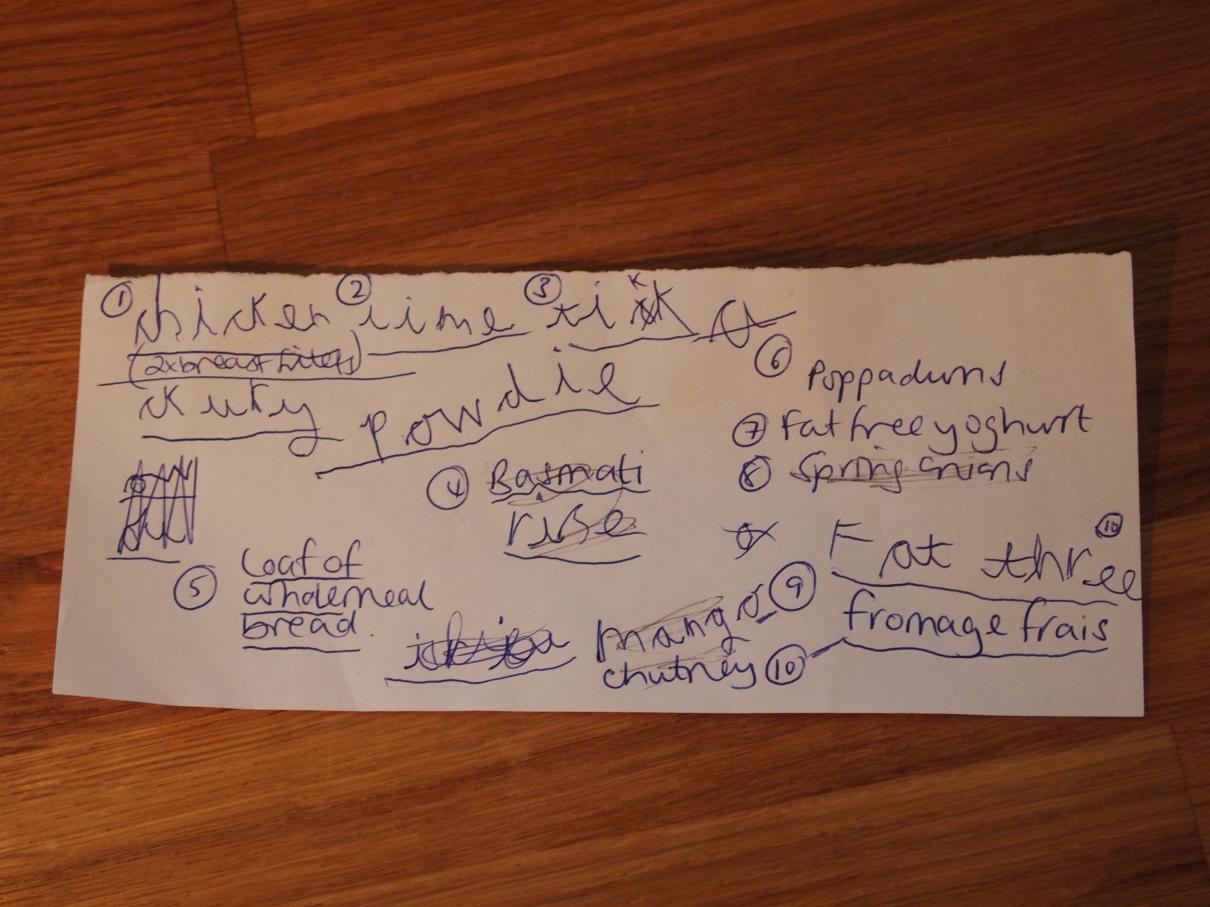 ① chicken ② lime ③ tikka
(2x breast fillets)
kury powdie
⑥ Poppadums
⑦ Fat free yoghurt
④ Basmati
rise
⑧ Spring onions
⑤ Loaf of
wholemeal
bread.
Fat three ⑩
mango ⑨
chutney ⑩
fromage frais